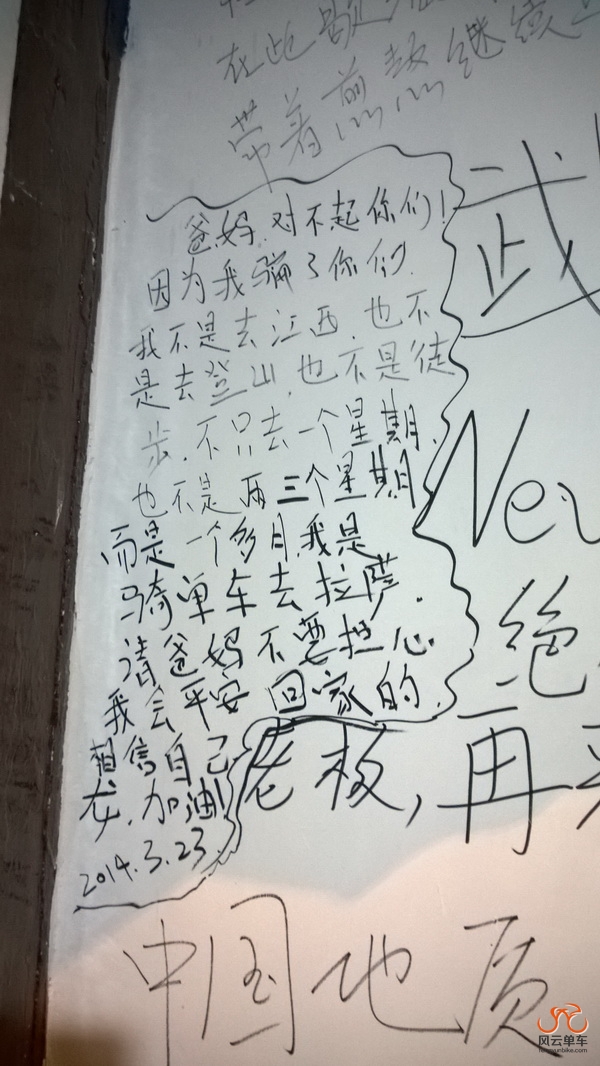 在此
带着前热继续
爸妈.对不起你们!
因为我骗了你们.
我不是去江西.也不
是去登山.也不是徒
步.不只去一个星期.
也不是两三个星期
而是一个多月.我是
骑单车去拉萨.
请爸妈不要担心
我会平安回家的.
相信自己
龙.加油!
2014.3.23
武
Nev
绝
老板,再来
中国地质
风云单车